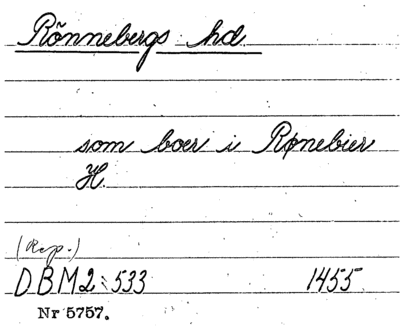 Rönnebergs hd
som boer i Rønebier
H.
(Rep.)
DBM2:533 1455
Nr 5757.